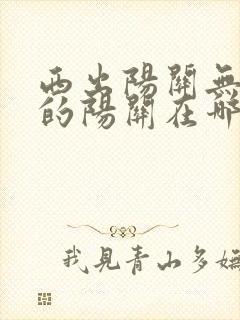 西出陽關無
的陽關在哪
我見青山多嫵